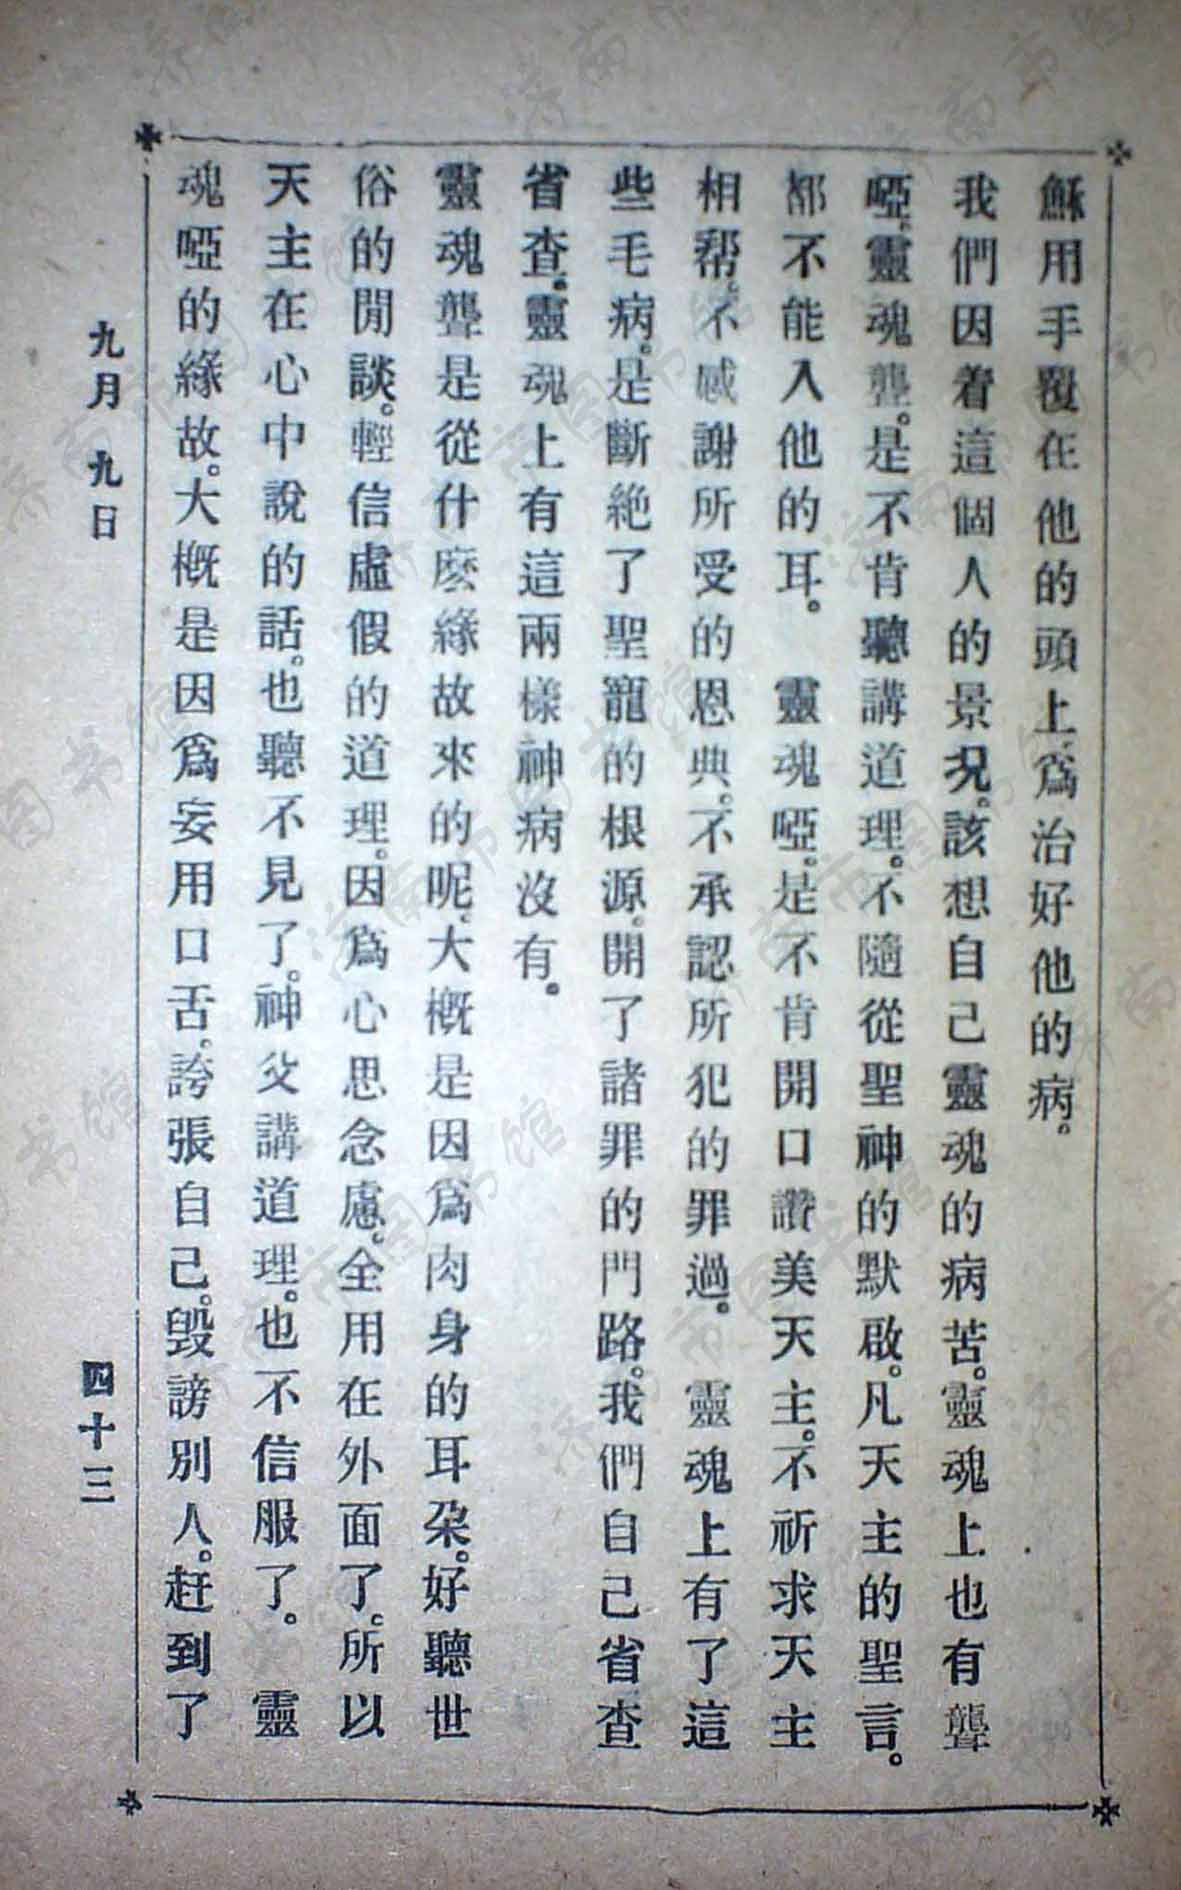 穌用手覆在他的頭上爲治好他的病。
我們因着這個人的景况。該想自己靈魂的病苦。靈魂上也有聾
啞。靈魂聾。是不肯聽講道理。不隨從聖神的默啟。凡天主的聖言。
都不能入他的耳。　靈魂啞。是不肯開口讚美天主。不祈求天主
相帮。不感謝所受的恩典。不承認所犯的罪過。　靈魂上有了這
些毛病。是斷絶了聖寵的根源。開了諸罪的門路。我們自己省查
省查。靈魂上有這兩樣神病沒有。
靈魂聾是從什麽緣故來的呢。大概是因爲肉身的耳朶。好聽世
俗的閒談。輕信虛假的道理。因爲心思念慮。全用在外面了。所以
天主在心中說的話。也聽不見了。神父講道理。也不信服了。　靈
魂啞的緣故。大概是因爲妄用口舌。誇張自己。毀謗別人。赶到了
九月九日
四十三